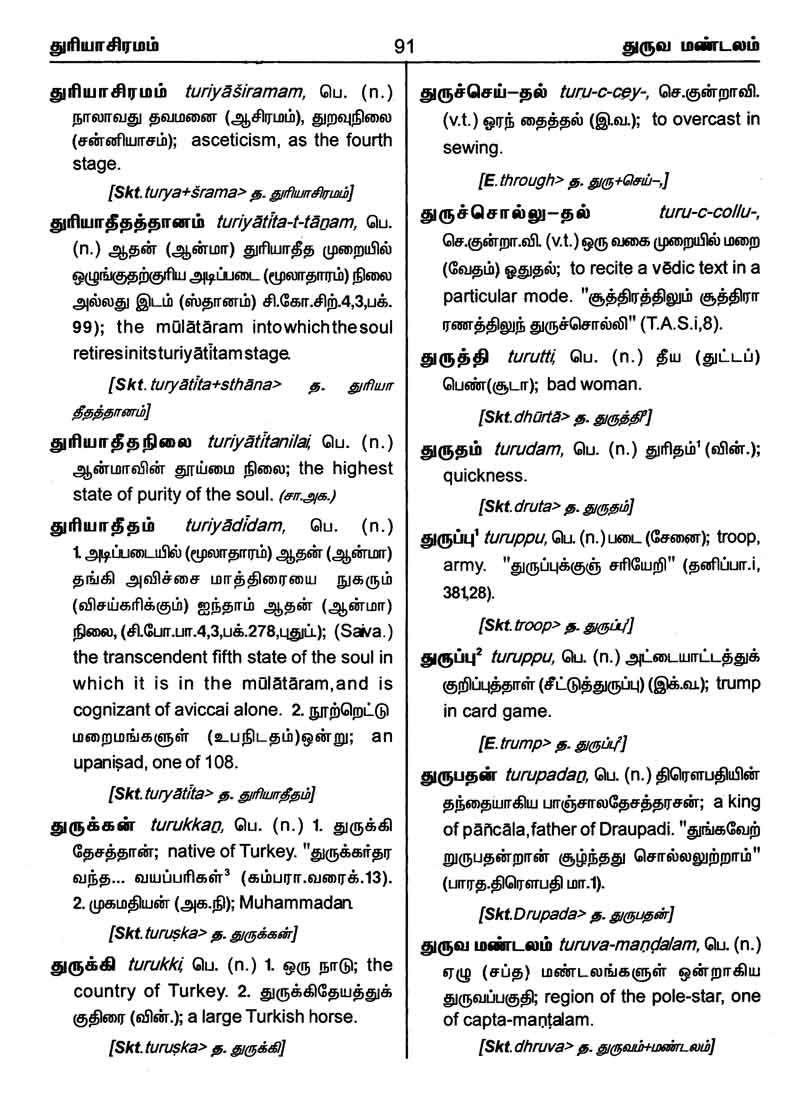 துரியாசிரமம் 91 துருவ மண்டலம்
துரியாசிரமம் turiyāširamam, பெ. (n.)
நாலாவது தவமனை (ஆசிரமம்), துறவுநிலை
(சன்னியாசம்); asceticism, as the fourth
stage.
[Skt. turya+šrama> த. துரியாசிரமம்]
துரியாதீதத்தானம் turiyātīta-t-tāṉam, பெ.
(n.) ஆதன் (ஆன்மா) துரியாதீத முறையில்
ஒழுங்குதற்குரிய அடிப்படை (மூலாதாரம்) நிலை
அல்லது இடம் (ஸ்தானம்) சி.கோ.சிற்.4,3,பக்.
99); the mūlātāram intowhichthesoul
retiresinitsturiyātītamstage.
[Skt. turyātīta+sthāna> த. துரியா
தீதத்தானம்]
துரியாதீதநிலை turiyātītanilai, பெ. (n.)
ஆன்மாவின் தூய்மை நிலை; the highest
state of purity of the soul. (சா.அக.)
துரியாதீதம் turiyādīdam, பெ. (n.)
1. அடிப்படையில் (மூலாதாரம்) ஆதன் (ஆன்மா)
தங்கி அவிச்சை மாத்திரையை நுகரும்
(விசய்கரிக்கும்) ஐந்தாம் ஆதன் (ஆன்மா)
நிலை, (சி.போ.பா.4,3,பக்.278,புதுப்.); (Saiva.)
the transcendent fifth state of the soul in
which it is in the mūlātāram,and is
cognizant of aviccai alone. 2. நூற்றெட்டு
மறைமங்களுள் (உபநிடதம்)ஒன்று; an
upaniṣad, one of 108.
[Skt. turyātīta> த. துரியாதீதம்]
துருக்கன் turukkaṉ, பெ. (n.) 1. துருக்கி
தேசத்தான்; native of Turkey. "துருக்கர்தர
வந்த... வயப்பரிகள்³ (கம்பரா.வரைக்.13).
2. முகமதியன் (அக.நி); Muhammadan.
[Skt. turuṣka> த. துருக்கன்]
துருக்கி turukki, பெ. (n.) 1. ஒரு நாடு; the
country of Turkey. 2. துருக்கிதேயத்துக்
குதிரை (வின்.); a large Turkish horse.
[Skt. turuṣka> த. துருக்கி]
துருச்செய்–தல் turu-c-cey-, செ.குன்றாவி.
(v.t.) ஓரந் தைத்தல் (இ.வ.); to overcast in
sewing.
[E. through> த. துரு+செய்–,]
துருச்சொல்லு–தல் turu-c-collu-,
செ.குன்றா.வி. (v.t.) ஒரு வகை முறையில் மறை
(வேதம்) ஓதுதல்; to recite a vēdic text in a
particular mode. "சூத்திரத்திலும் சூத்திரா
ரணத்திலுந் துருச்சொல்லி" (T.A.S.i,8).
துருத்தி turutti, பெ. (n.) தீய (துட்டப்)
பெண்(சூடா); bad woman.
[Skt. dhūrtā> த. துருத்தி³]
துருதம் turudam, பெ. (n.) துரிதம்¹ (வின்.);
quickness.
[Skt. druta> த. துருதம்]
துருப்பு¹ turuppu, பெ. (n.) படை (சேனை); troop,
army. "துருப்புக்குஞ் சரியேறி" (தனிப்பா.i,
381,28).
[Skt. troop> த. துருப்பு¹]
துருப்பு² turuppu, பெ. (n.) அட்டையாட்டத்துக்
குறிப்புத்தாள் (சீட்டுத்துருப்பு) (இக்.வ.); trump
in card game.
[E. trump> த. துருப்பு²]
துருபதன் turupadaṉ, பெ. (n.) திரௌபதியின்
தந்தையாகிய பாஞ்சாலதேசத்தரசன்; a king
of pāñcāla,father of Draupadi. "துங்கவேற்
றுருபதன்றான் சூழ்ந்தது சொல்லலுற்றாம்"
(பாரத.திரௌபதி மா.1).
[Skt. Drupada> த. துருபதன்]
துருவ மண்டலம் turuva-maṇḍalam, பெ. (n.)
ஏழு (சப்த) மண்டலங்களுள் ஒன்றாகிய
துருவப்பகுதி; region of the pole-star, one
of capta-maṇṭalam.
[Skt. dhruva> த. துருவம்+மண்டலம்]